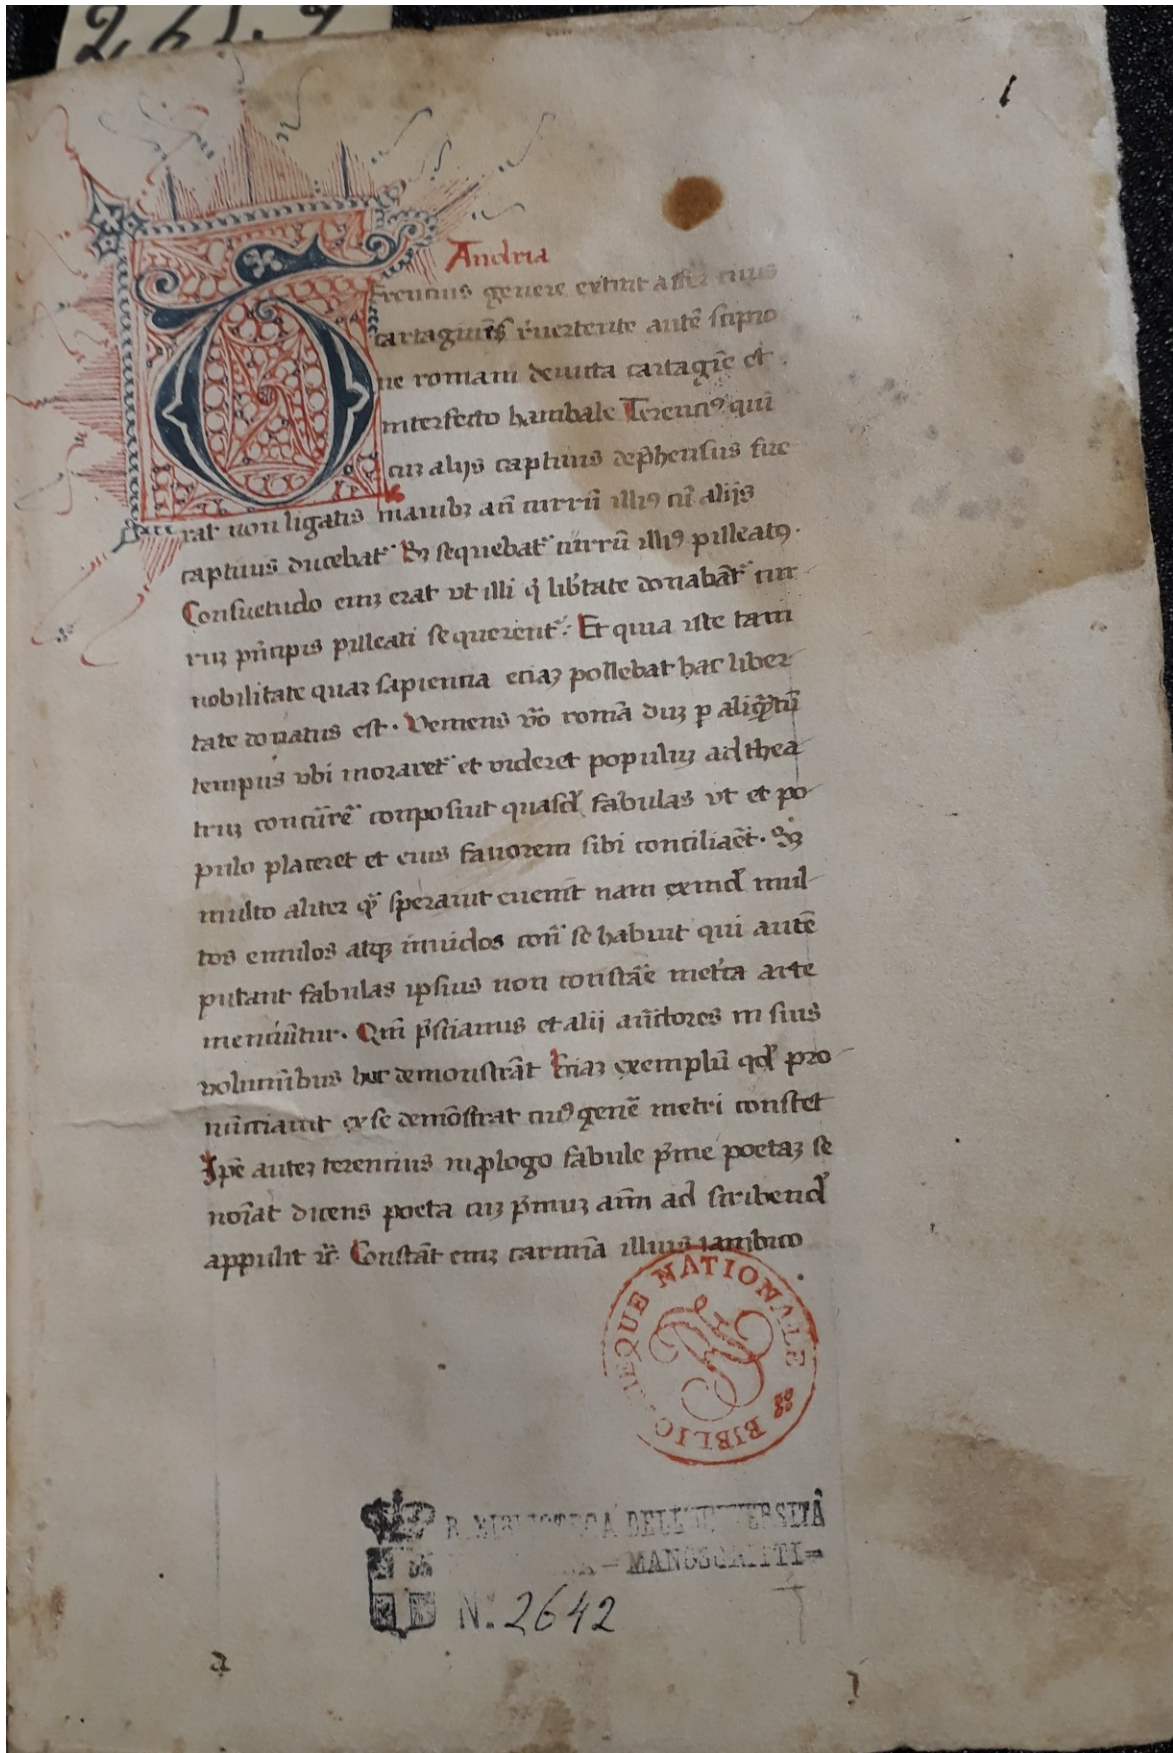 1
Andria
Terencius genere extitit affer ciuis
cartaginēs rͥuertente autē scipio
ne romam deuicta cartagīe et
interfecto hanibale Terenciꝯ qui
cuꝫ alijs captiuus dep̄hensus fue
rat non ligatis manibꝫ an̄ currū illiꝯ cū alijs
captiuus ducebat᷑ Sꝫ sequebat᷑ currū illiꝯ pilleatꝯ.
Consuetudo eniꝫ erat vt illi q̄ lib̄tate donabāt᷑ cur
ruꝫ pͥncipis pilleati sequerent᷑. Et quia iste tam
nobilitate quaꝫ sapiencia eciaꝫ pollebat hac liber
tate donatus est. Veniens v̄o romā duꝫ ꝑ aliqͣntū
tempus vbi moraret᷑ et videret populuꝫ ad thea
truꝫ concurrē conposiut quasd̄ fabulas vt et po
pulo placeret et eius fauorem sibi conciliaēt. Sꝫ
multo aliter qͣ̄ sperauit euenit nam exind̄ mul
tos emulos atqꝫ inuidos con̄ se habuit qui autē
putant fabulas ipsius non constāe met͛ca arte
menciūtur. Qm̄ p̄scianus et alij auctores in suis
voluminibus hoc demonstrāt Eciaꝫ exemplū qd̄ pro
nūciauit ex se demōstrat cuiꝯ genē metri constet
Ip̄e auteꝫ terencius in ꝓlogo fabule p̄me poetaꝫ se
noīat dicens poeta cuꝫ p̄muꝫ aīm ad scribend̄
appulit ⁊c̄. Constāt eniꝫ carmīa illius iambico
BIBLIOTHEQUE NATIONALE
R. BIBLIOTECA DELL'UNIVERSITÀ
- MANOSCRITTI =
N: 2642
a